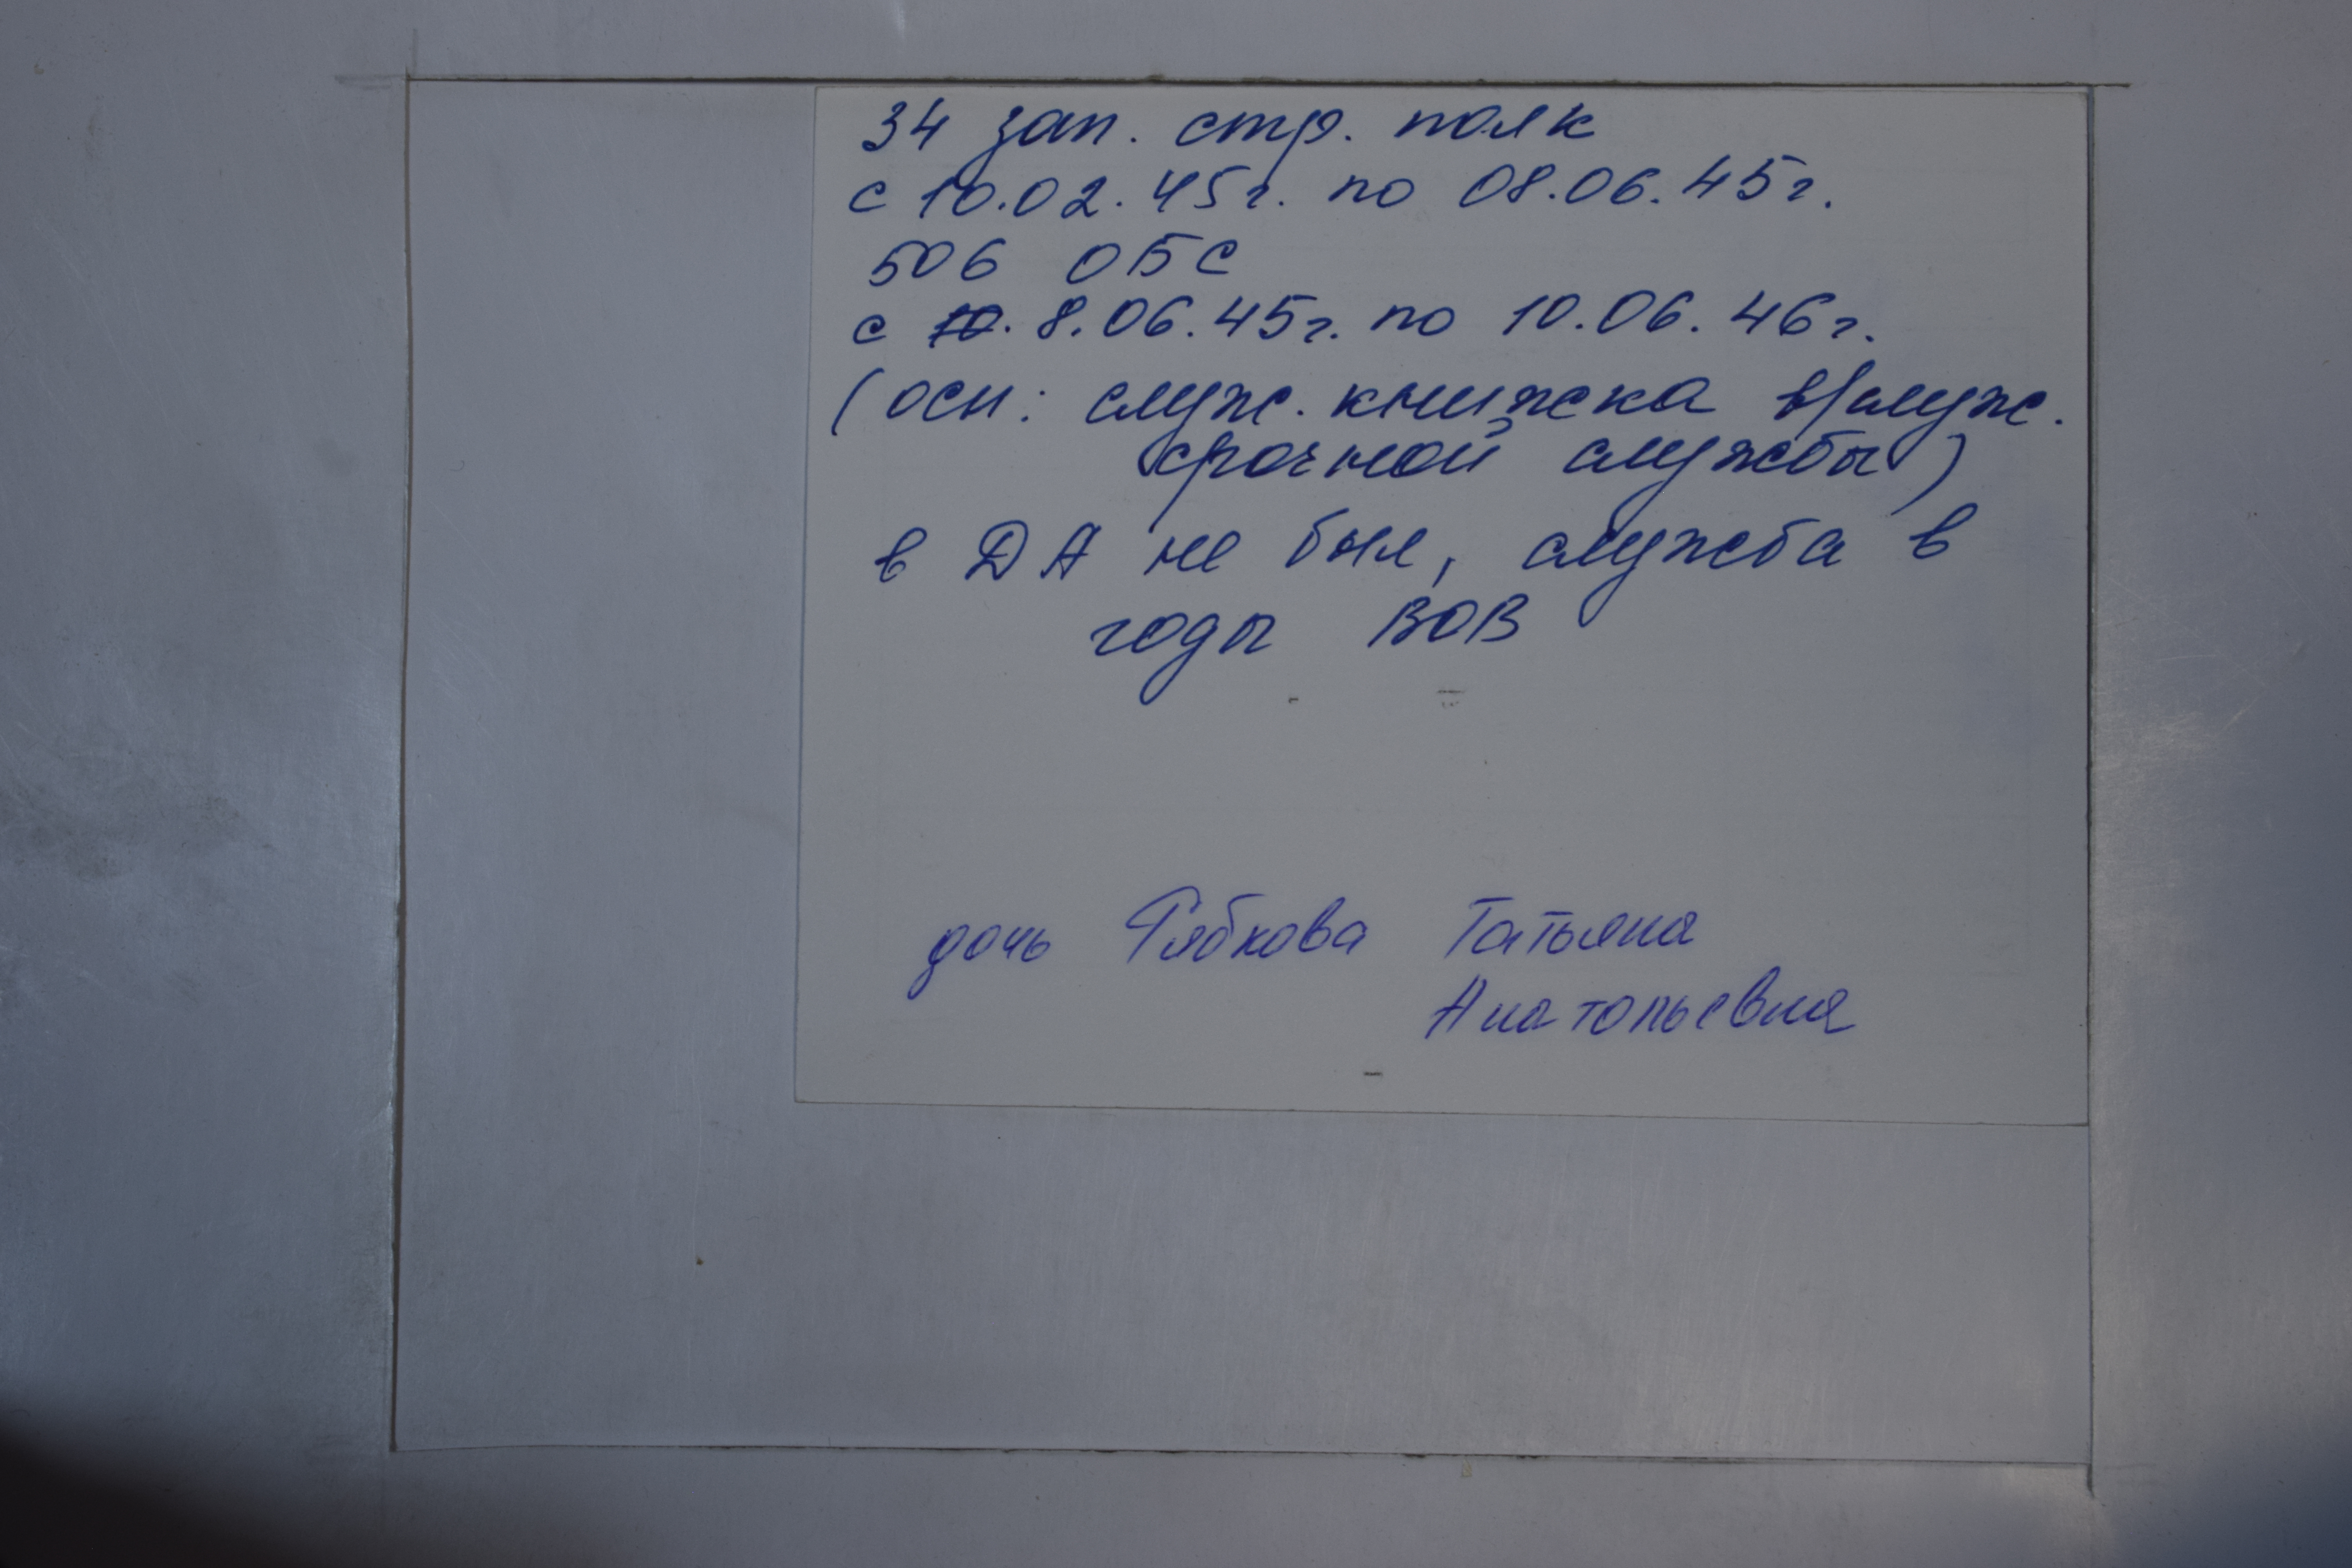 34 зап. стр. полк
с 10.02.45г. по 08.06.45г.
506 ОБС
с 8.06.45г. по 10.06.46г.
(осн: служ. книжка в/служ.
срочной службы)
в ДА не был, служба в
годы ВОВ
дочь Рябкова Татьяна
Анатольевна